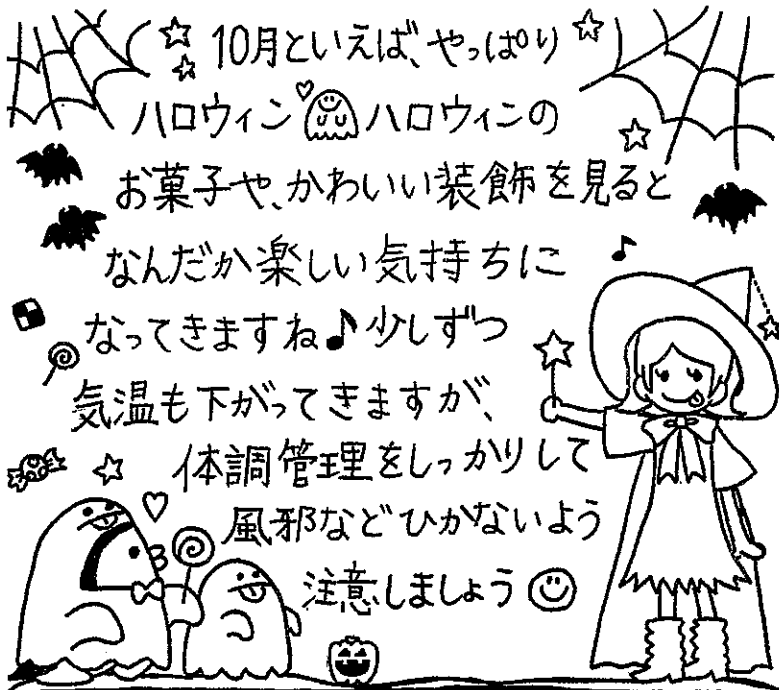 10月といえば、やっぱり
ハロウィン ハロウィンの
お菓子や、かわいい装飾を見ると
なんだか楽しい気持ちに
なってきますね♪少しずつ
気温も下がってきますが、
体調管理をしっかりして
風邪などひかないよう
注意しましょう